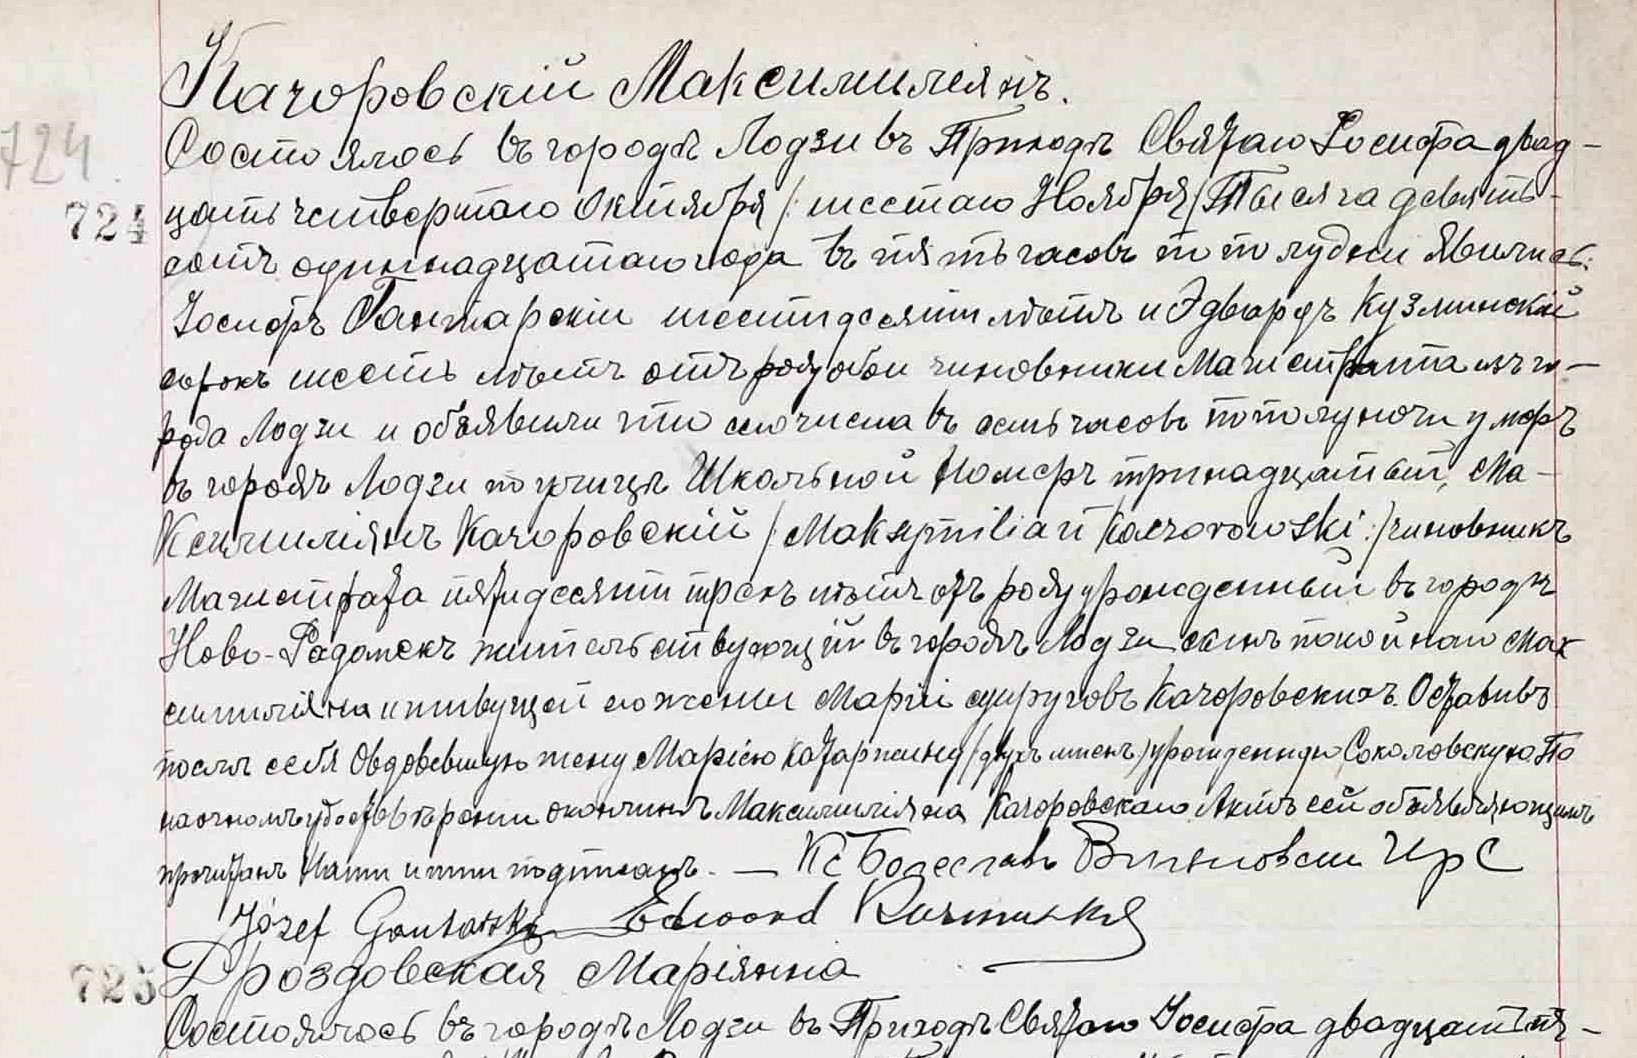 Качоровскій Максимиліянъ.
724.
Состоялось въ городѣ Лодзи въ Приходѣ Святаго Іосифа двад-
724
цать четвертаго Октября /: шестаго Ноября / Тысяча девять-
сотъ одиннадцатаго года въ пять часовъ по полудни Явились:
Іосифъ шестидесяти лѣтъ и Эдвардъ Кузминскій
сорокъ шесть лѣтъ отъ роду обои чиновники Магистрата изъ го-
рода Лодзи и объявили что сего числа въ семь часовъ по полуночи умеръ
въ городѣ Лодзи по улицѣ Школьной Номеръ тринадцатый, Ма-
ксимиліянъ Качоровскій /: Maksymilian Kaczorowski :/ чиновникъ
Магистрата пятидесяти трехъ лѣтъ отъ роду урожденный въ городѣ
Ново-Радомскѣ жительствующій въ городѣ Лодзи сынъ покойнаго Мак
симиліяна и живущей его жены Маріи супруговъ Качоровскихъ. Оставивъ
послѣ себя Овдовевшую жену Марію Катаржину /двухъ именъ/ урожденную Соколовскую. По
наочномъ удостовѣреніи кончины Максимиліяна Качоровскаго Актъ сей объявляющимъ
прочитанъ Нами и ими подписанъ. — Кс Болеслав И р С
Józef Edward Kuzminski
725
Дроздовская Маріянна
Состоялось въ городѣ Лодзи въ Приходѣ Святаго Іосифа двадцать пя-